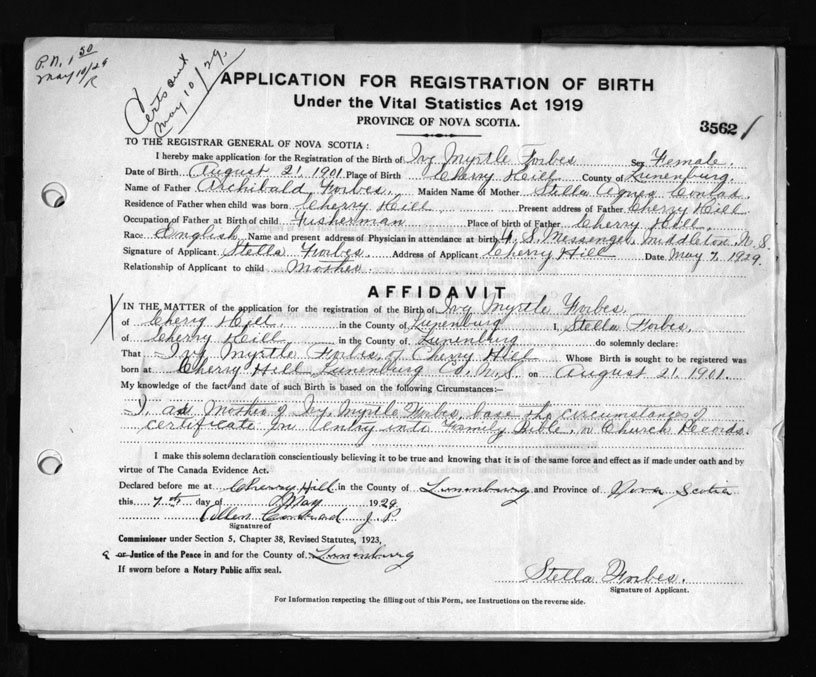 P.N. 1 50
May 10/29
R
Certs out
May 10/29.
APPLICATION FOR REGISTRATION OF BIRTH
Under the Vital Statistics Act 1919
PROVINCE OF NOVA SCOTIA.
3562
TO THE REGISTRAR GENERAL OF NOVA SCOTIA :
I hereby make application for the Registration of the Birth of Ivy Myrtle Forbes Sex Female.
Date of Birth August 21, 1901. Place of Birth Cherry Hill County of Lunenburg.
Name of Father Archibald Forbes. Maiden Name of Mother Stella Agnes Conrad.
Residence of Father when child was born Cherry Hill Present address of Father Cherry Hill
Occupation of Father at Birth of child Fisherman Place of birth of Father Cherry Hill.
Race English Name and present address of Physician in attendance at birth S. Messenger, Middleton N.S.
Signature of Applicant Stella Forbes. Address of Applicant Cherry Hill Date May 7, 1929.
Relationship of Applicant to child Mother.
AFFIDAVIT
IN THE MATTER of the application for the registration of the Birth of Ivy Myrtle Forbes.
of Cherry Hill. in the County of Lunenburg I, Stella Forbes.
of Cherry Hill in the County of Lunenburg do solemnly declare:
That Ivy Myrtle Forbes, of Cherry Hill Whose Birth is sought to be registered was
born at Cherry Hill Lunenburg Co. N.S. on August 21, 1901.
My knowledge of the fact and date of such Birth is based on the following Circumstances:—
I, as Mother of Ivy Myrtle Forbes, base the circumstances of
certificate on entry into Family Bible, or Church Records.
I make this solemn declaration conscientiously believing it to be true and knowing that it is of the same force and effect as if made under oath and by
virtue of The Canada Evidence Act.
Declared before me at Cherry Hill in the County of Lunenburg and Province of Nova Scotia
this 7th day of May 1929
Allen Conrad J.P.
Signature of
Commissioner under Section 5, Chapter 38, Revised Statutes, 1923,
or Justice of the Peace in and for the County of Lunenburg
If sworn before a Notary Public affix seal.
Stella Forbes.
Signature of Applicant.
For Information respecting the filling out of this Form, see Instructions on the reverse side.